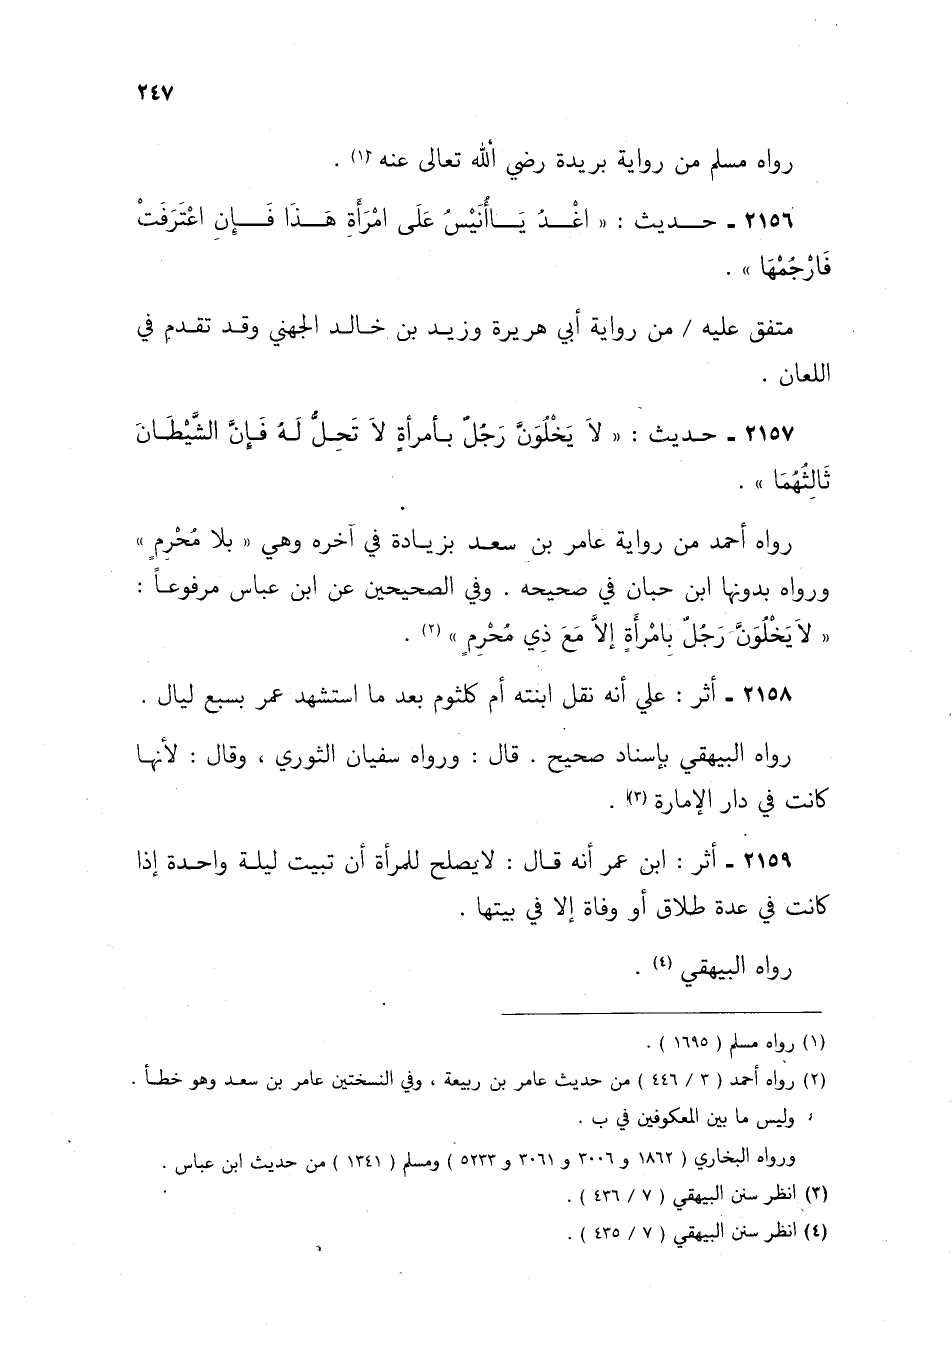 ٢٤٧
رواه مسلم من رواية بريدة رضي الله تعالى عنه (١) .
٢١٥٦ ـ حـديث : « اغْـدُ يَـاأُنَيْسُ عَلَى امْرَأَةِ هَـذَا فَـإِن اعْتَرَفَتْ
فَارْجُمْهَا » .
متفق عليه / من رواية أبي هريرة وزيد بن خالد الجهني وقد تقدم في
اللعان .
٢١٥٧ ـ حديث : « لاَ يَخْلُوَنَّ رَجُلٌ بـأمرأةٍ لاَ تَحِلُّ لَهُ فَإِنَّ الشَّيْطَانَ
ثَالِثُهُمَا » .
رواه أحمد من رواية عامر بن سعد بزيادة في آخره وهي « بلا مُحْرِمٍ »
ورواه بدونها ابن حبان في صحيحه . وفي الصحيحين عن ابن عباس مرفوعاً :
« لاَيَخْلُوَنَّ رَجُلٌ بِامْرَأَةٍ إلاَّ مَعَ ذِي مُحْرِمٍ » (٢) .
٢١٥٨ ـ أثر : علي أنه نقل ابنته أم كلثوم بعد ما استشهد عمر بسبع ليال .
رواه البيهقي بإسناد صحيح . قال : ورواه سفيان الثوري ، وقال : لأنها
كانت في دار الإمارة (٣) .
٢١٥٩ ـ أثر : ابن عمر أنه قال : لايصلح للمرأة أن تبيت ليلة واحدة إذا
كانت في عدة طلاق أو وفاة إلا في بيتها .
رواه البيهقي (٤) .
(١) رواه مسلم ( ١٦٩٥ ) .
(٢) رواه أحمد ( ٣ / ٤٤٦ ) من حديث عامر بن ربيعة ، وفي النسختين عامر بن سعد وهو خطأ .
وليس ما بين المعكوفين في ب .
ورواه البخاري ( ١٨٦٢ و ٣٠٠٦ و ٣٠٦١ و ٥٢٣٣ ) ومسلم ( ١٣٤١ ) من حديث ابن عباس .
(٣) انظر سنن البيهقي ( ٧ / ٤٣٦ ) .
(٤) انظر سنن البيهقي ( ٧ / ٤٣٥ ) .